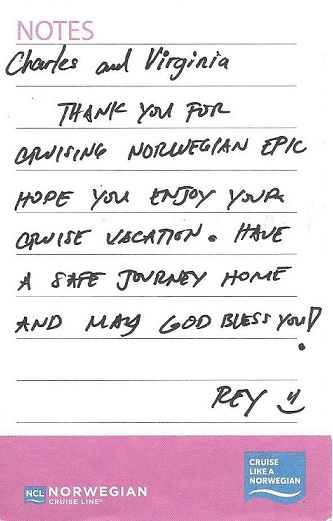 NOTES
Charles and Virginia
THANK YOU FOR
CRUISING NORWEGIAN EPIC
HOPE YOU ENJOY YOUR
CRUISE VACATION. HAVE
A SAFE JOURNEY HOME
AND MAY GOD BLESS YOU!
REY
NCL NORWEGIAN
CRUISE LINE®
CRUISE
LIKE A
NORWEGIAN